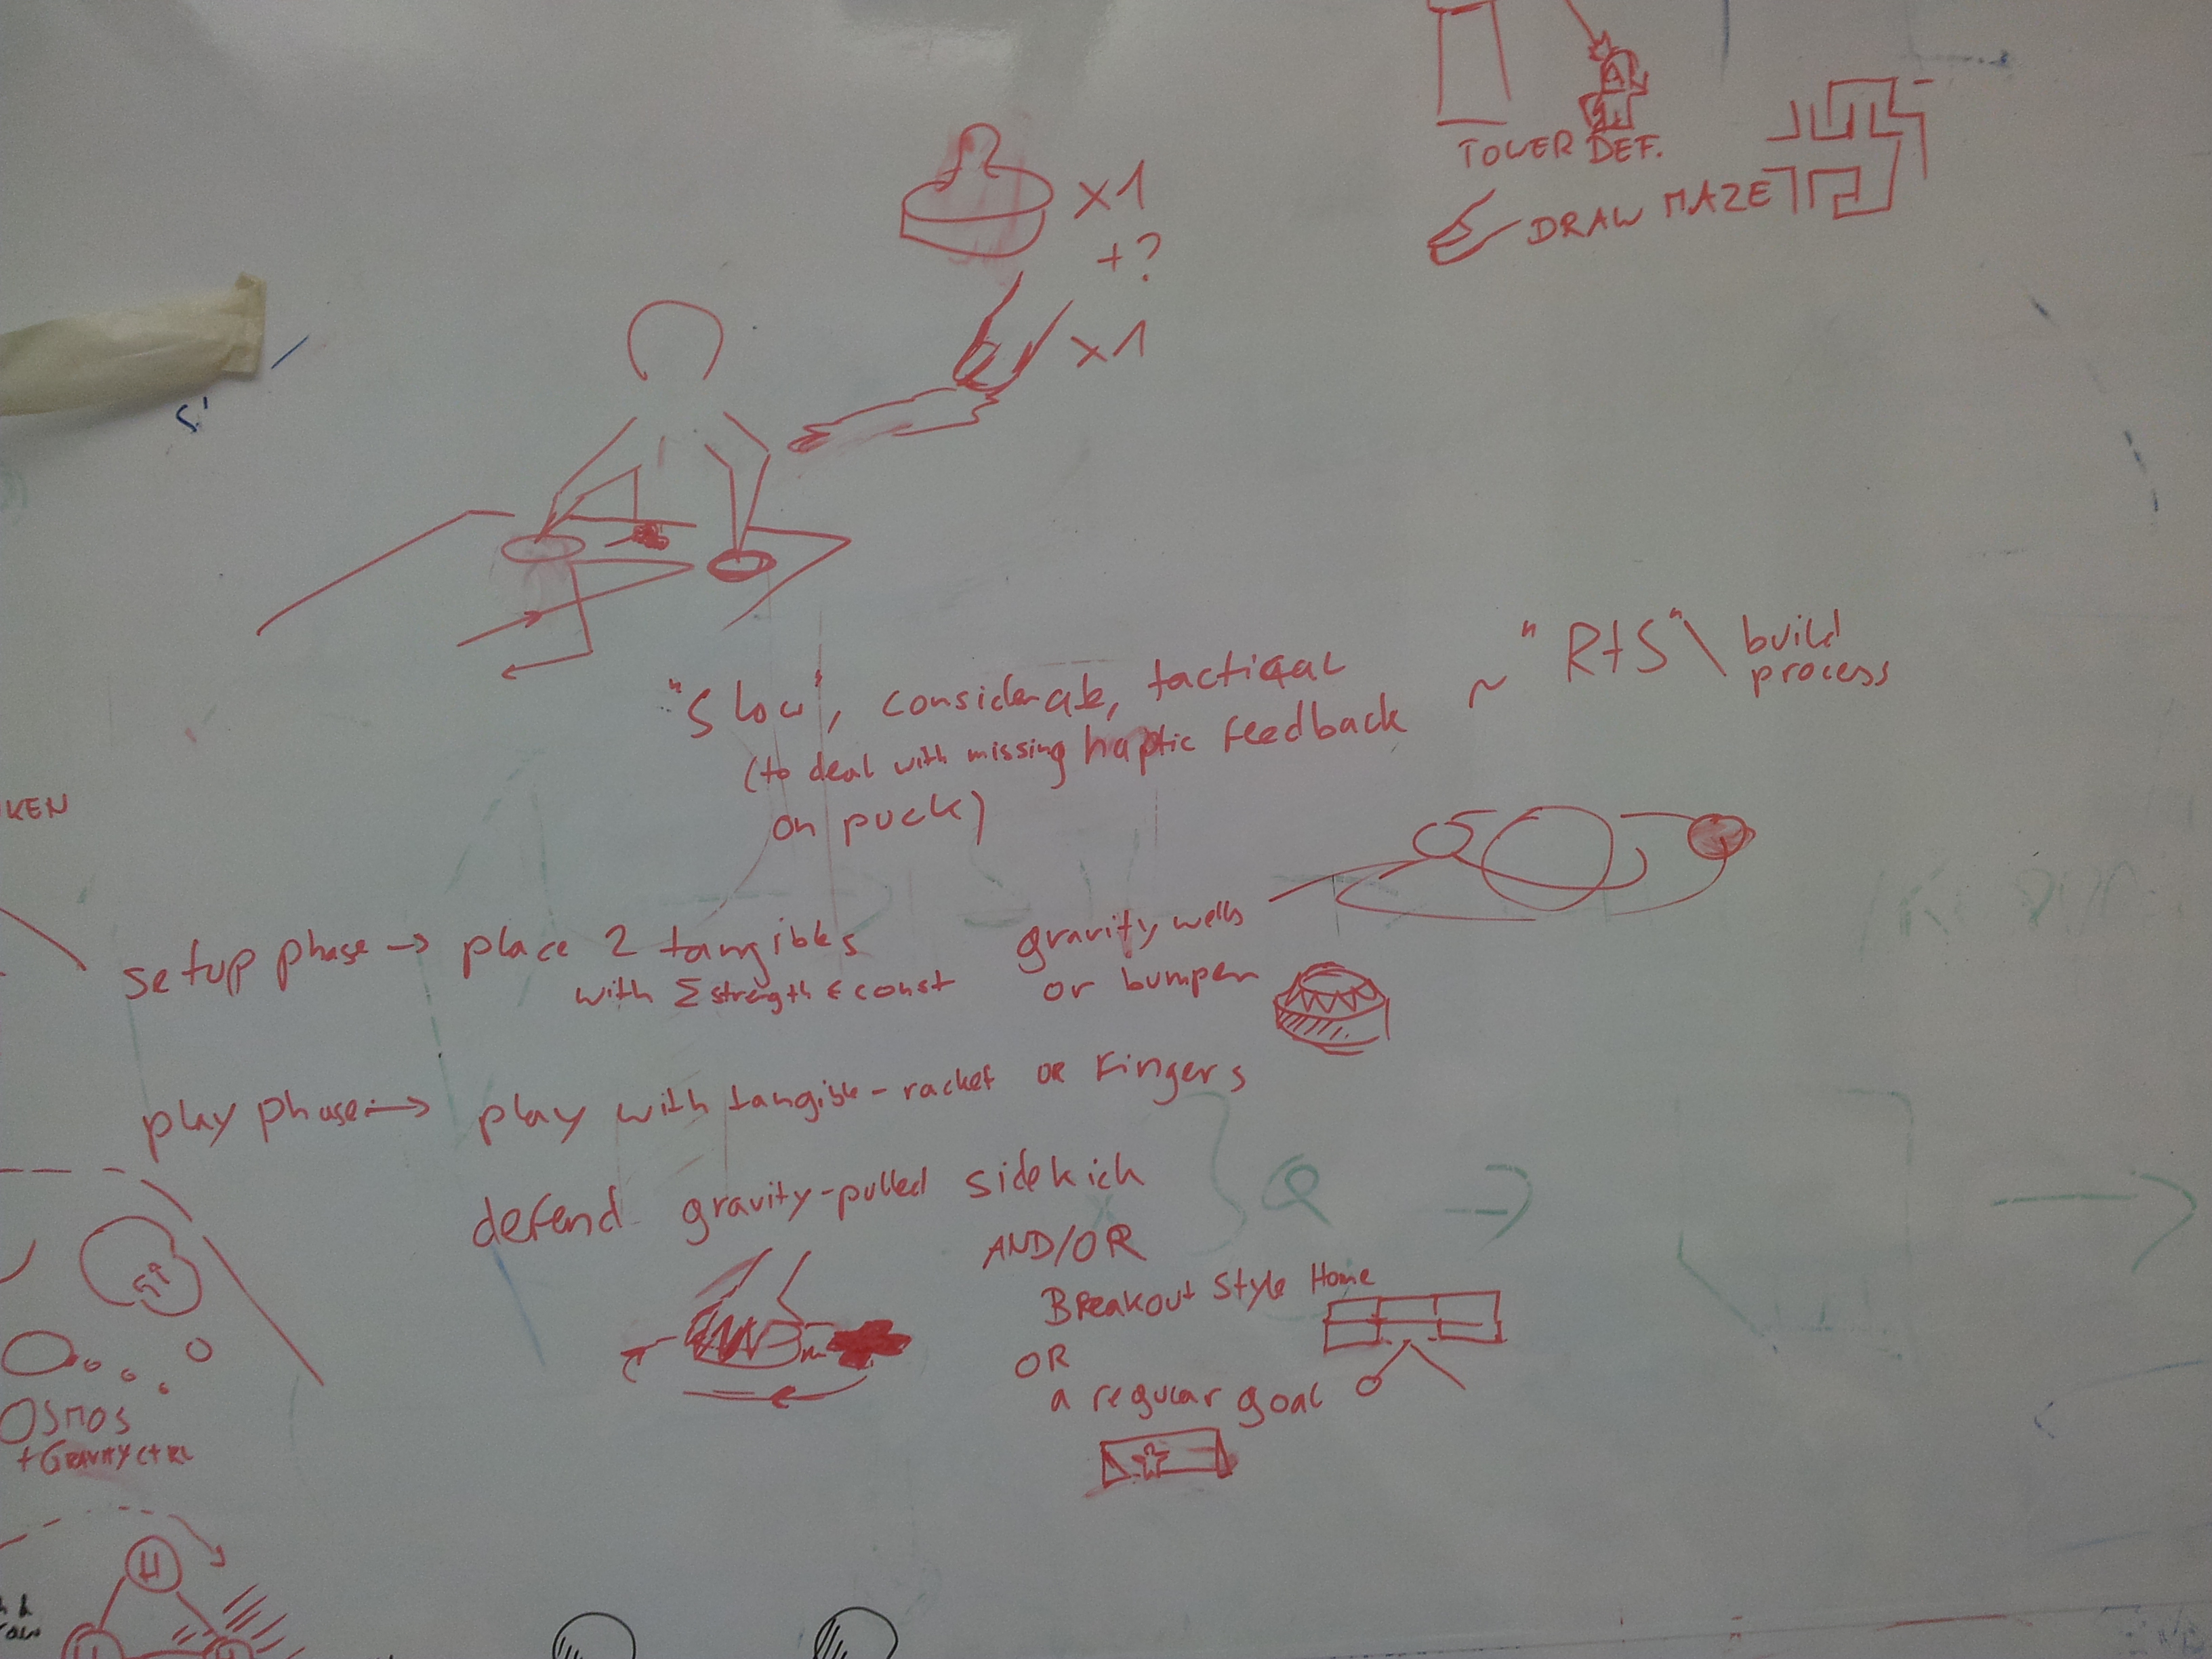 TOWER DEF.
DRAW MAZE
x1
+?
x1
"Slow", considerate, tactical
(to deal with missing haptic feedback
on puck)
~ "RtS" \ build
process
KEN
setup phase → place 2 tangibles
with Σ strength ≤ const
gravity wells
or bumper
play phase → play with tangible-racket OR Fingers
defend gravity-pulled sidekick
AND/OR
Breakout Style Home
OR
a regular goal
OSMOS
+GRAVITY CTRL
H